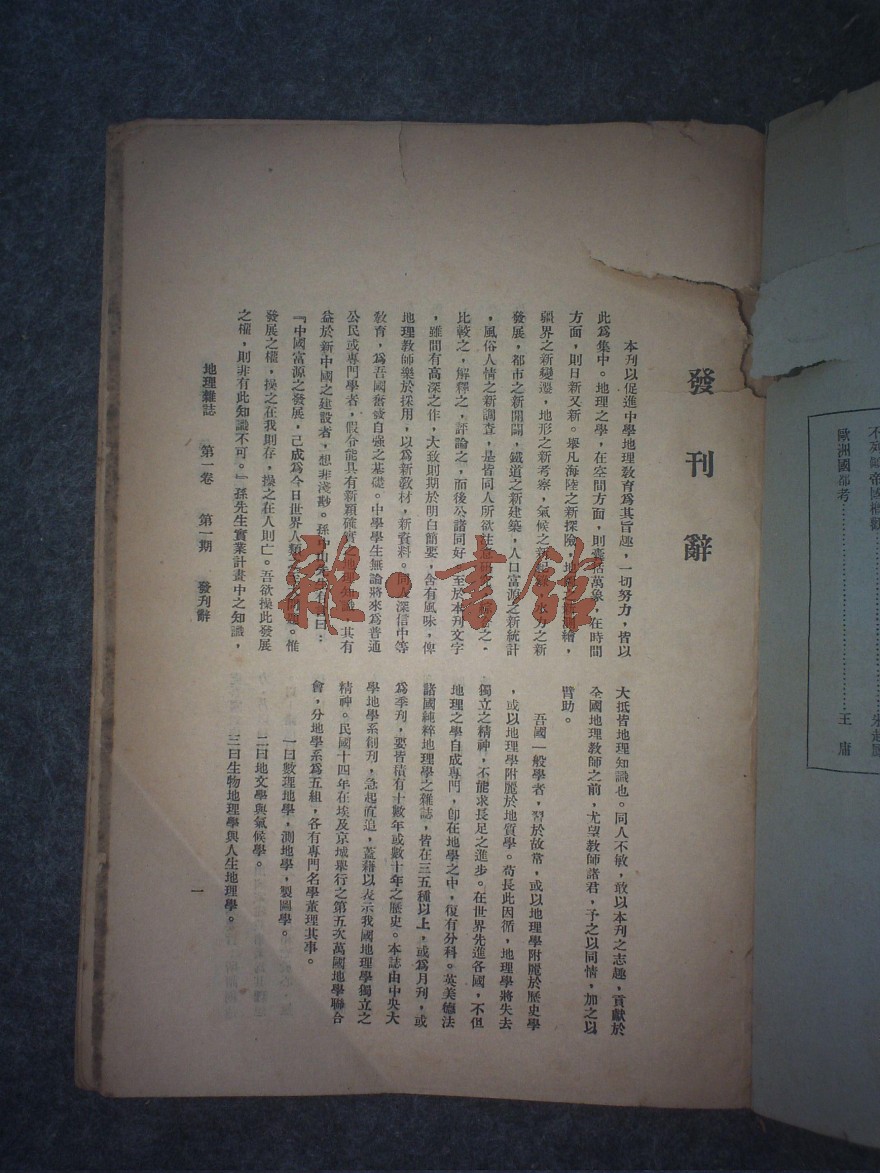 發刊辭
本刊以促進中學地理教育為其旨趣,一切努力,皆以
此為集中。地理之學,在空間方面,則囊括萬象,在時間
方面,則日新又新。舉凡海陸之新探險,地
疆界之新變遷,地形之新考察,氣候之新 力之新
發展,都市之新開闢,鐵道之新建築,人口富源之新統計
,風俗人情之新調査,是皆同人所欲
比較之,解釋之,評論之,而後公諸同好。至於本刊文字
,雖間有高深之作,大致則期於明白簡要,含有風味,俾
地理教師樂於採用,以為新教材,新資料。同人深信中等
教育,為吾國奮發自強之基礎。中學學生無論將來為普通
公民或專門學者,假令能具有新穎確實之地理知識,其有
益於新中國之建設者,想非淺尠。孫中山先生有言曰:
『中國富源之發展,已成為今日世界人類之 問題。惟
發展之權,操之在我則存,操之在人則亡。吾欲操此發展
之權,則非有此知識不可。』孫先生實業計畫中之知識,
大抵皆地理知識也。同人不敏,敢以本刊之志趣,貢獻於
全國地理教師之前,尤望教師諸君,予之以同情,加之以
臂助。
吾國一般學者,習於故常,或以地理學附麗於歷史學
,或以地理學附麗於地質學。苟長此因循,地理學將失去
獨立之精神,不能求長足之進步。在世界先進各國,不但
地理之學自成專門,卽在地學之中,復有分科。英美德法
諸國純粹地理學之雜誌,皆在三五種以上,或為月刊,或
為季刊,要皆積有十數年或數十年之歷史。本誌由中央大
學地學系創刊,急起直追,蓋藉以表示我國地理學獨立之
精神。民國十四年在埃及京城舉行之第五次萬國地學聯合
會,分地學系為五組,各有專門名學董理其事。
一曰數理地學,測地學,製圖學。
二曰地文學與氣候學。
三曰生物地理學與人生地理學。
地理雜誌 第一卷 第一期 發刊辭
一
歐洲國都考 王庸
雜·書館